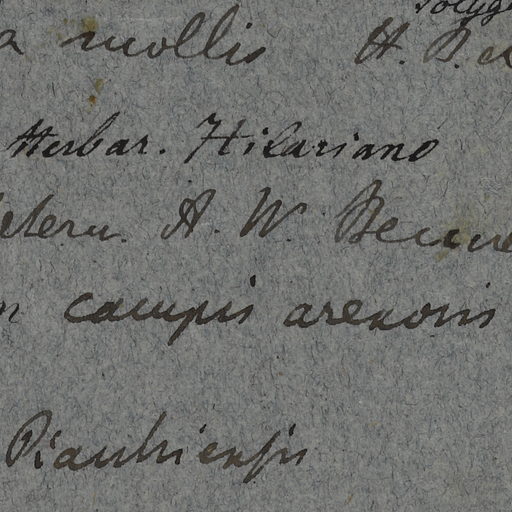 Polyg
a mollis H. B. et
Herbar. Hilariano
determ. A. W. Benne
campis arenosis
Piauhiensis